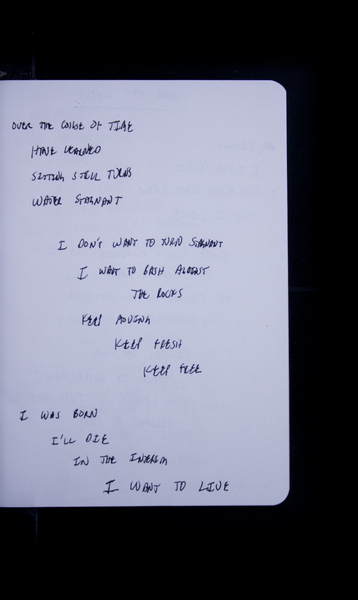 OVER THE COURSE OF TIME
HAVE LEARNED
SITTING STILL TURNS
WATER STAGNANT
I DON'T WANT TO TURN STAGNANT
I WANT TO BASH AGAINST
THE ROCKS
KEEP MOVING
KEEP FRESH
KEEP FREE
I WAS BORN
I'LL DIE
IN THE INTERIM
I WANT TO LIVE